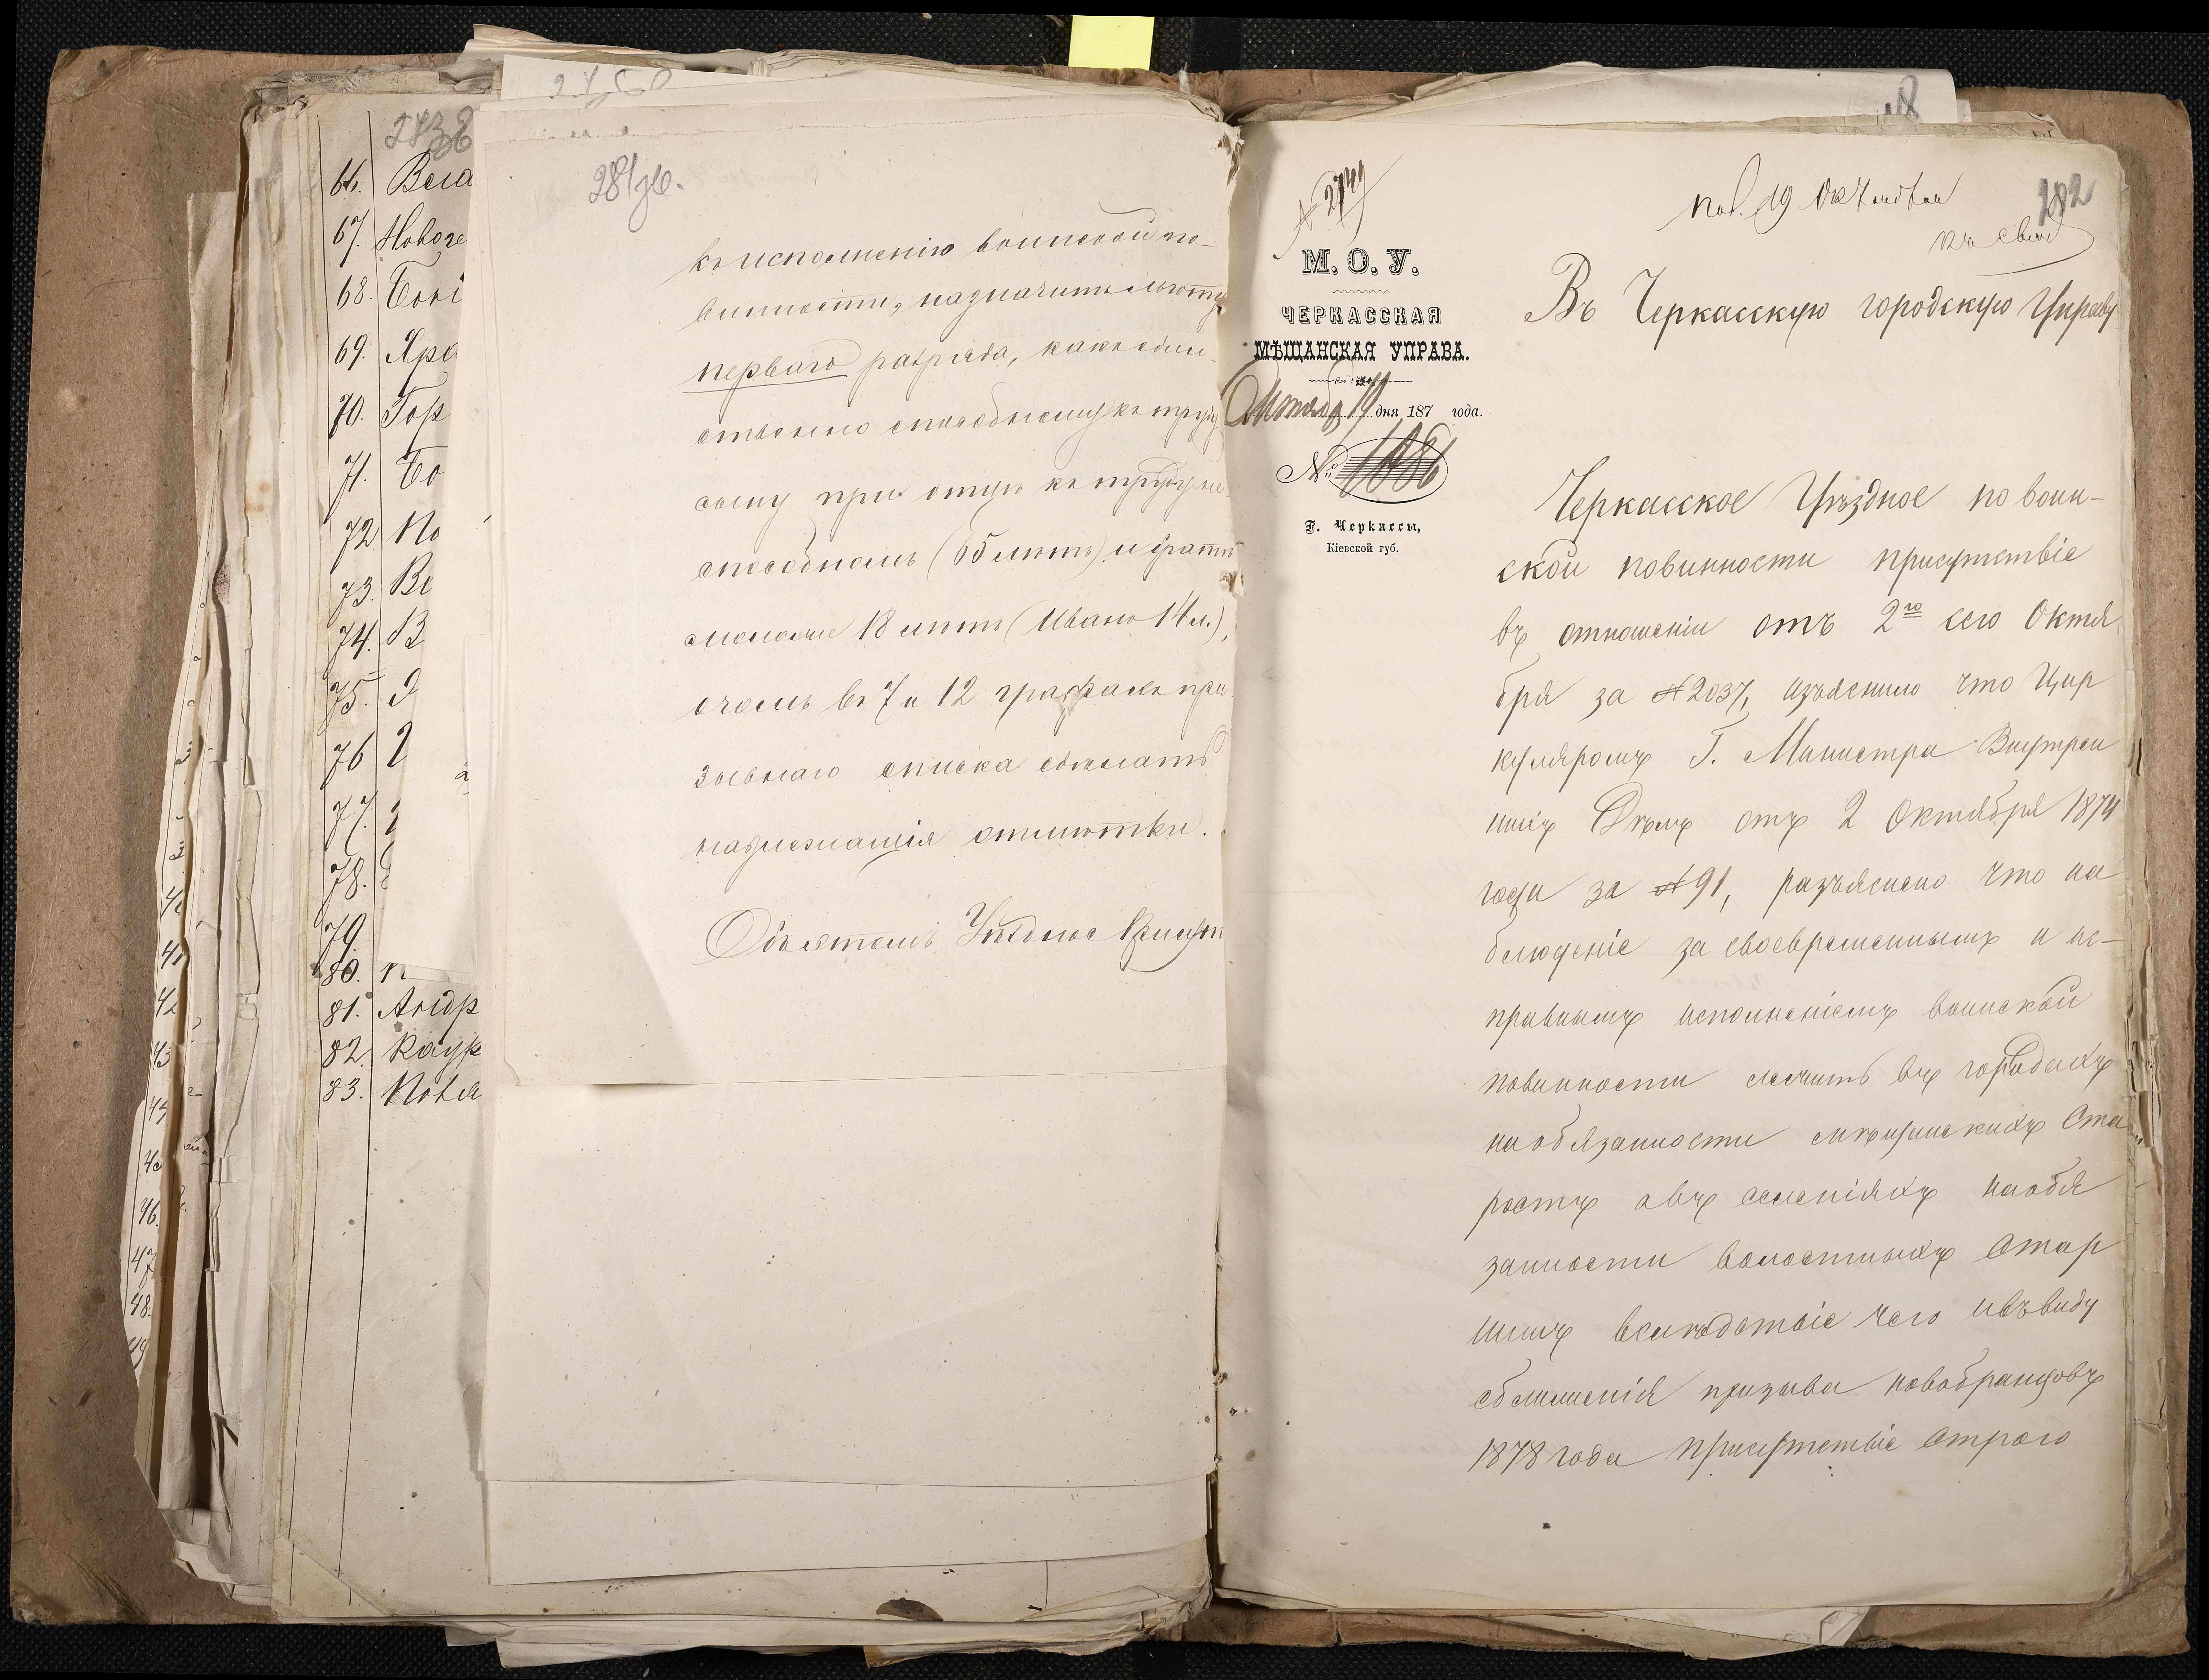 66. Вела
67. Новоге
68. Бокі
69. Яра
70. Гор
71. Бо
72. По
73. Ве
74. В
75.
76
77.
78.
79.
80. п
81. Андр
82. Кауф
83. Повя
281 об.
къ исполненію воинской по-
винности, назначить льготу
перваго разряда, какъ един-
ственно способному къ труду
сыну при отцѣ къ труду не
способномъ (65 лѣтъ) и братѣ
моложе 18 лѣтъ (Иванъ 14 л.),
о чемъ въ 7 и 12 графахъ при
зывнаго списка сдѣлать
надлежащія отмѣтки.
Объ этомъ Уѣздное Присут
№ 2749
пол. 19 Октября
282
М. О. У.
ЧЕРКАССКАЯ
МѢЩАНСКАЯ УПРАВА.
Октября 19 дня 187 года.
№ 1086
Г. Черкассы,
Кіевской губ.
Въ Черкасскую городскую Управу
Черкасское Уѣздное по воин-
ской повинности присутствіе
въ отношеніи отъ 2го сего Октя
бря за №2037, изъяснило что Цир
куляромъ Г. Министра Внутрен
нихъ Дѣлъ отъ 2 Октября 1874
года за №91, разъяснено что на
блюденіе за своевременнымъ и ис-
правнымъ исполненіемъ воинской
повинности лежитъ въ городахъ
на обязанности мѣщанскихъ Ста
ростъ а въ селеніяхъ на обя
занности волостныхъ Стар
шинъ вслѣдствіе чего и въ виду
сближенія призыва новобранцовъ
1878 года присутствіе строго